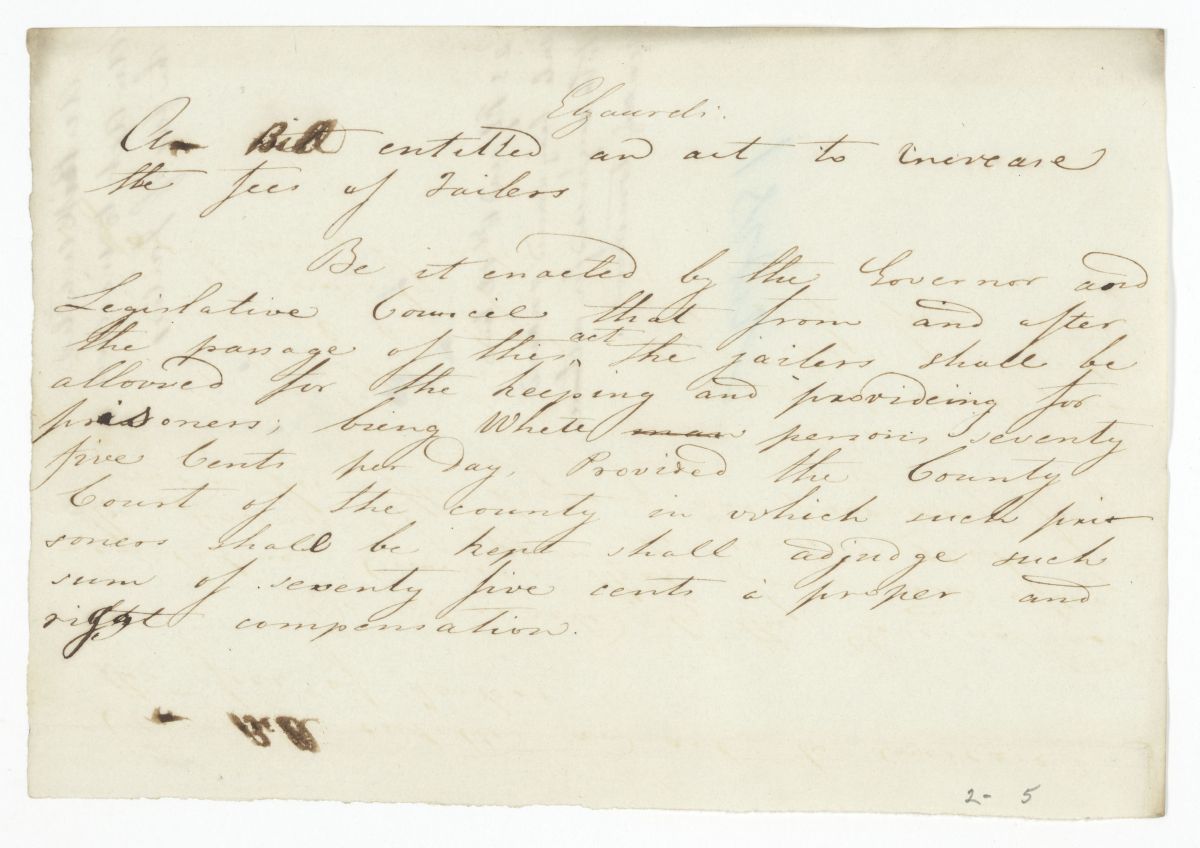 A Bill entitled an act to increase
the fees of Jailers
Be it enacted by the Governor and
Legislative Council that from and after
the passage of this act the jailers shall be
allowed for the keeping and providing for
prisoners, being White man persons seventy
five Cents per day, Provided the County
Court of the county in which such pri
soners shall be kept shall adjudge such
sum of seventy five cents a proper and
right compensation.
2- 5